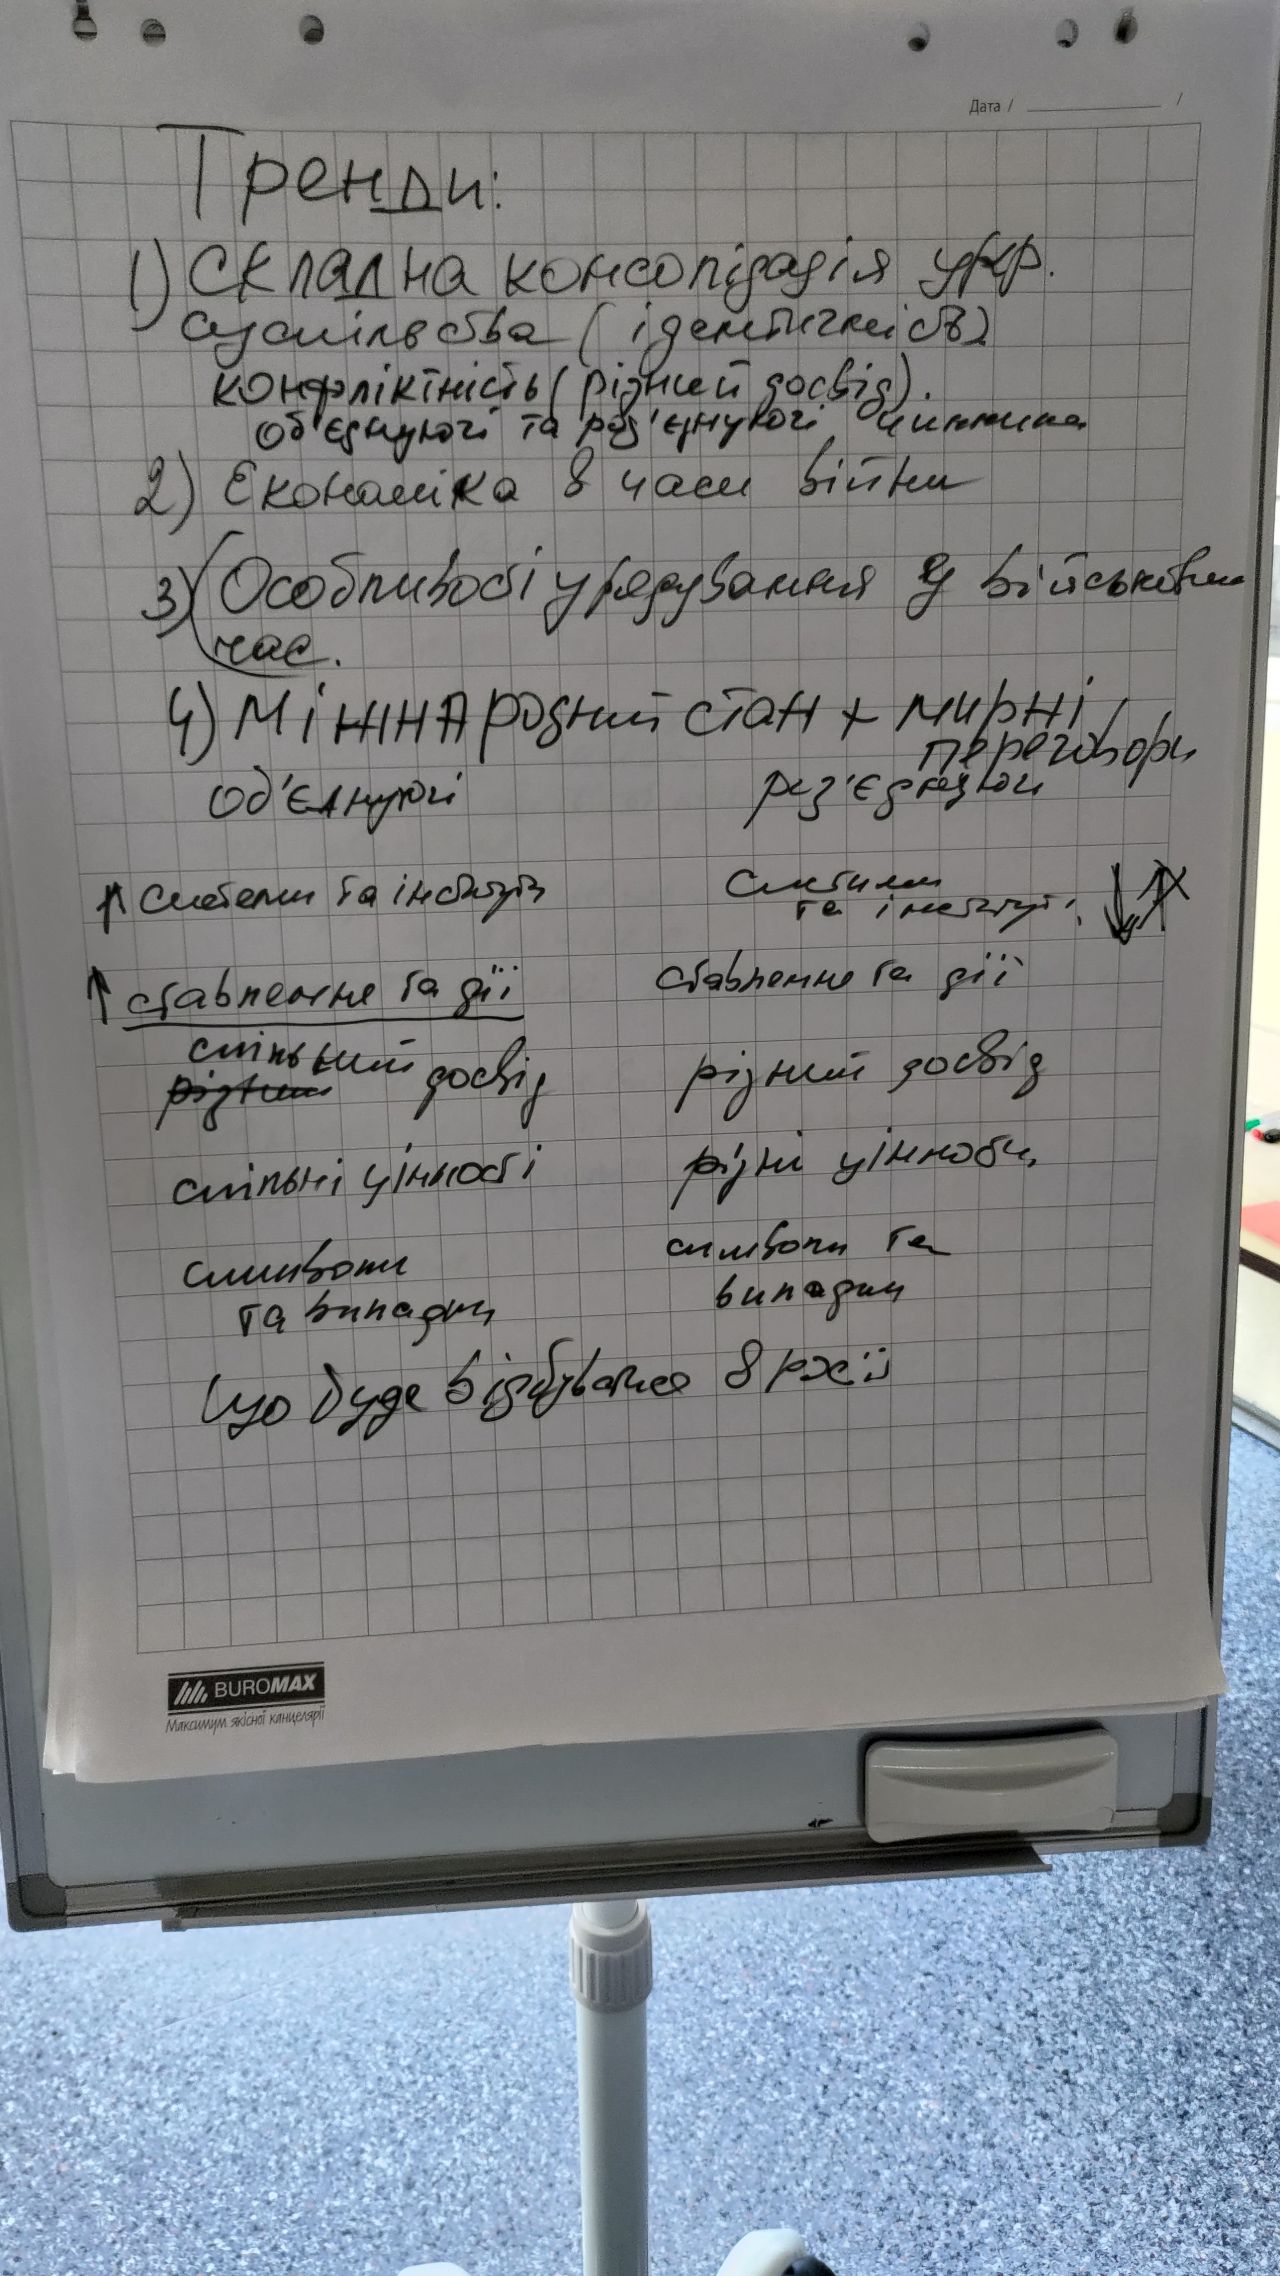 Дата / /
Тренди:
1) Складна консолідація укр.
суспільства (ідентичність)
конфліктність (різний досвід).
об'єднуючі та роз'єднуючі чинники
2) Економіка в часи війни
3) Особливості урядування у військовий
час.
4) Міжнародний стан + мирні
переговори
об'єднуючі роз'єднуючі
↑ системи та інститути системи
та інститути ↓↑
↑ ставлення та дії ставлення та дії
спільний
різний досвід різний досвід
спільні цінності різні цінності
символи символи та
та випадки випадки
Що буде відбуватися в росії
BUROMAX
Максимум якісної канцелярії